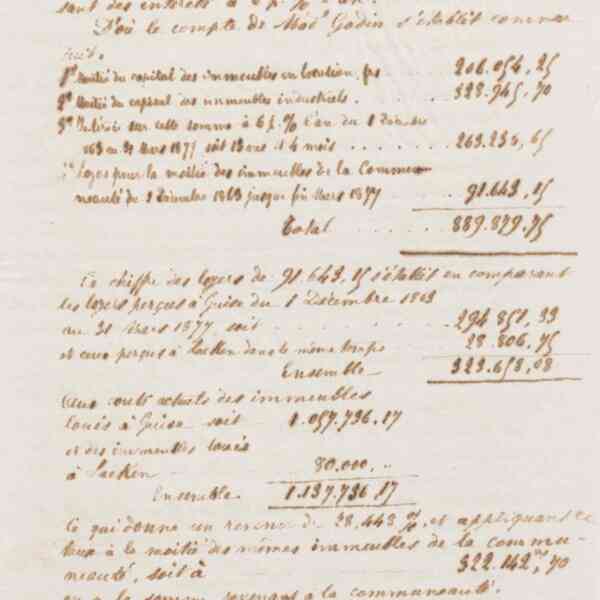 sont des intérêts à 6 p. % l'an.
D'où le compte de Mad.e Godin s'établit comme
suit.
1° Moitié du capital des immeubles en location, frs 206.054,25
2° Moitié du capital des immeubles industriels. 328.945,70
3° Intérêts sur cette somme à 6 p. % l'an du 1 Décembre
1863 au 31 Mars 1877 soit 13 ans et 4 mois 263.236,65
4° Loyers pour la moitié des immeubles de la Commu-
nauté du 1 Décembre 1863 jusque fin Mars 1877 91.643,15
Total 889.879.75
Ce chiffre des loyers de 91.643,15 s'établit en comparant
les loyers perçus à Guise du 1 Décembre 1863
au 31 Mars 1877 soit 294.851,33
et ceux perçus à Laeken dans le même temps 28.806,75
Ensemble 323.658,08
Aux coûts actuels des immeubles
loués à Guise soit 1.057.736,17
et des immeubles loués
à Laeken 80.000,..
Ensemble. 1.137.736,17
Ce qui donne un revenu de 28,443 %, et appliquant ce
taux à la moitié des mêmes immeubles de la commu-
nauté, soit à 322.142,70
on a la somme revenant à la communauté.